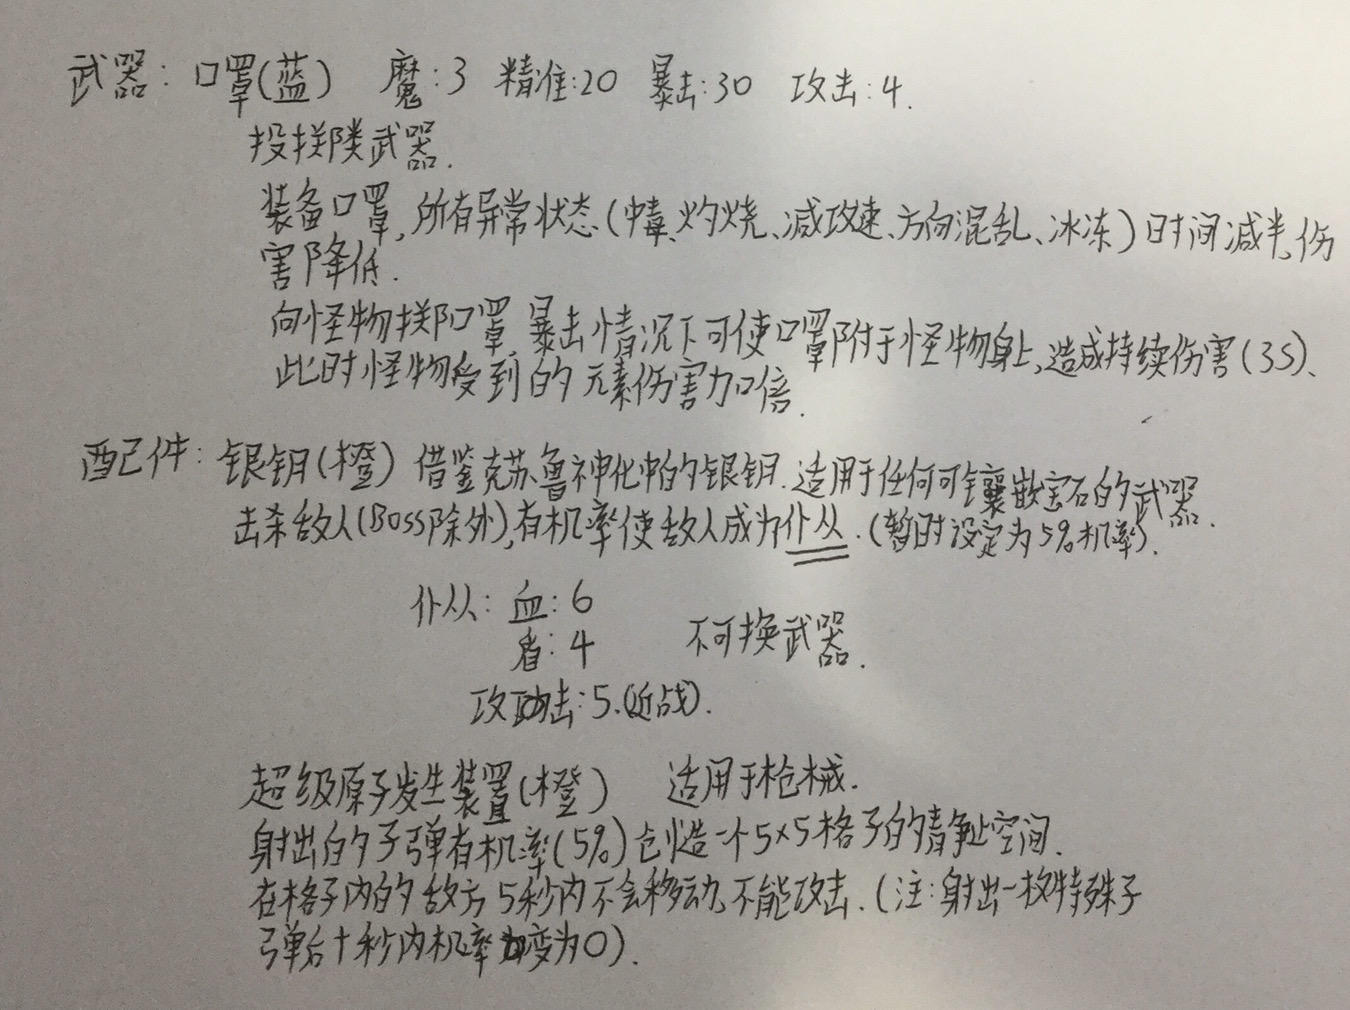 武器：口罩(蓝) 魔：3 精准：20 暴击：30 攻击：4.
投掷类武器.
装备口罩，所有异常状态(中毒、灼烧、减攻速、方向混乱、冰冻)时间减半，伤
害降低.
向怪物掷口罩，暴击情况下可使口罩附于怪物身上，造成持续伤害(3S)、
此时怪物受到的元素伤害加倍.
配件：银钥(橙) 借鉴克苏鲁神化中的银钥.适用于任何可镶嵌宝石的武器.
击杀敌人(Boss除外)，有机率使敌人成为仆从.(暂时设定为5%机率).
仆从：血：6
盾：4 不可换武器.
攻击：5.(近战).
超级原子发生装置(橙) 适用于枪械.
射出的子弹有机率(5%)创造一个5×5格子的静止空间.
在格子内的敌方5秒内不会移动，不能攻击.(注：射出一枚特殊子
弹后十秒内机率变为0).